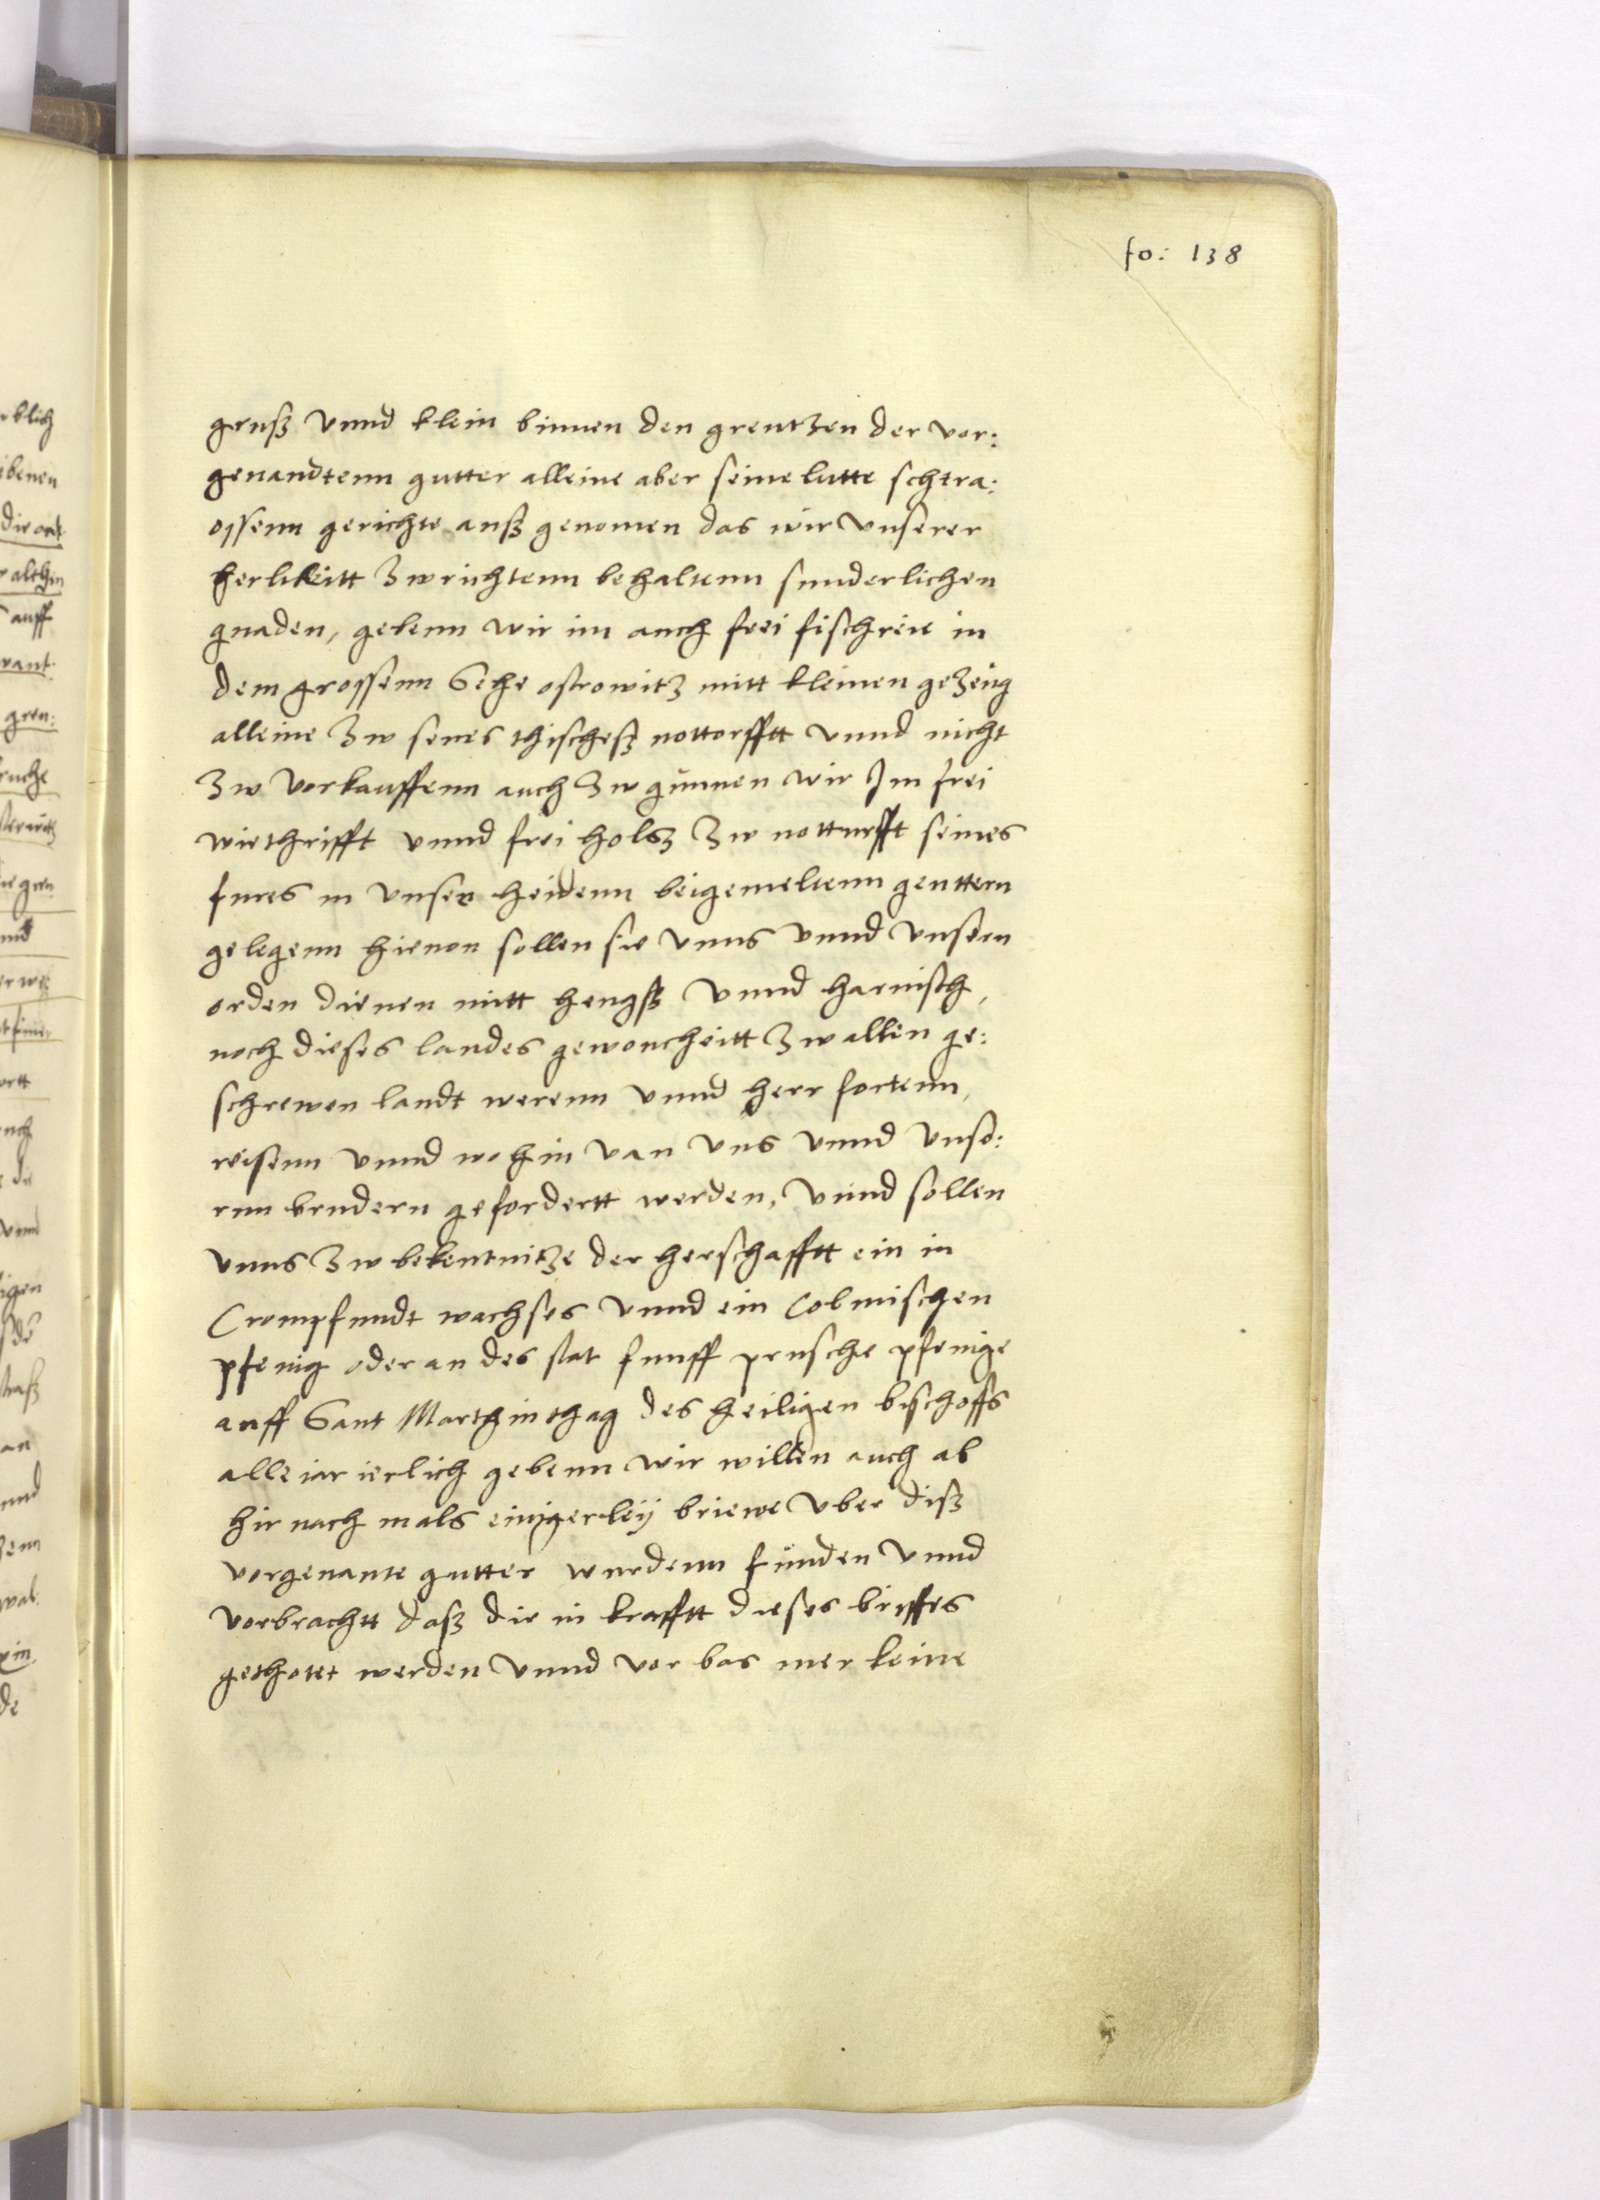 fo: 138
gruß vnnd klein binnen den grentzen der vor:
genandtenn gutter alleine aber seine lutte schtra:
ossenn gerichte auß genomen das wir vnserer
herlikeitt zw richtenn behaltenn sunderlichen
gnaden, gebenn wir im auch frei fischreie in
dem grossenn Sehe ostrowitz mitt kleinen gezeug
alleine zw senes thischeß nottorfftt vnnd nicht
zw vorkauffenn auch zw gunnen wir Im frei
wiethrifft vnnd frei holtz zw notturfft seines
fures in vnser heidenn bei gemeltenn geuttern
gelegenn hievon sollen sie vnns vnnd vnsern
orden dienen mitt hengst vnnd harnisch,
noch dieses landes gewoncheitt zw allen ge:
schrewen landt werenn vnnd herr fortenn,
reisenn vnnd wo hin van vns vnnd vnse:
rnn brudern gefordertt werden, vnnd sollen
vnns zw bekentnitze der herschafftt ein in
Crompfundt wachses vnnd ein Colmischen
pfenig oder an des stat funff prusche pfenige
auff Sant Marthin thag des heiligen bischoffs
alle iar ierlich gebenn wir willen auch ab
hir nach mals einigerleij briewe vber diß
vorgenante gutter wurdenn funden vnnd
vorbrachtt daß die in krafftt dieses briffes
gethotet werden vnnd vor bas mer keine